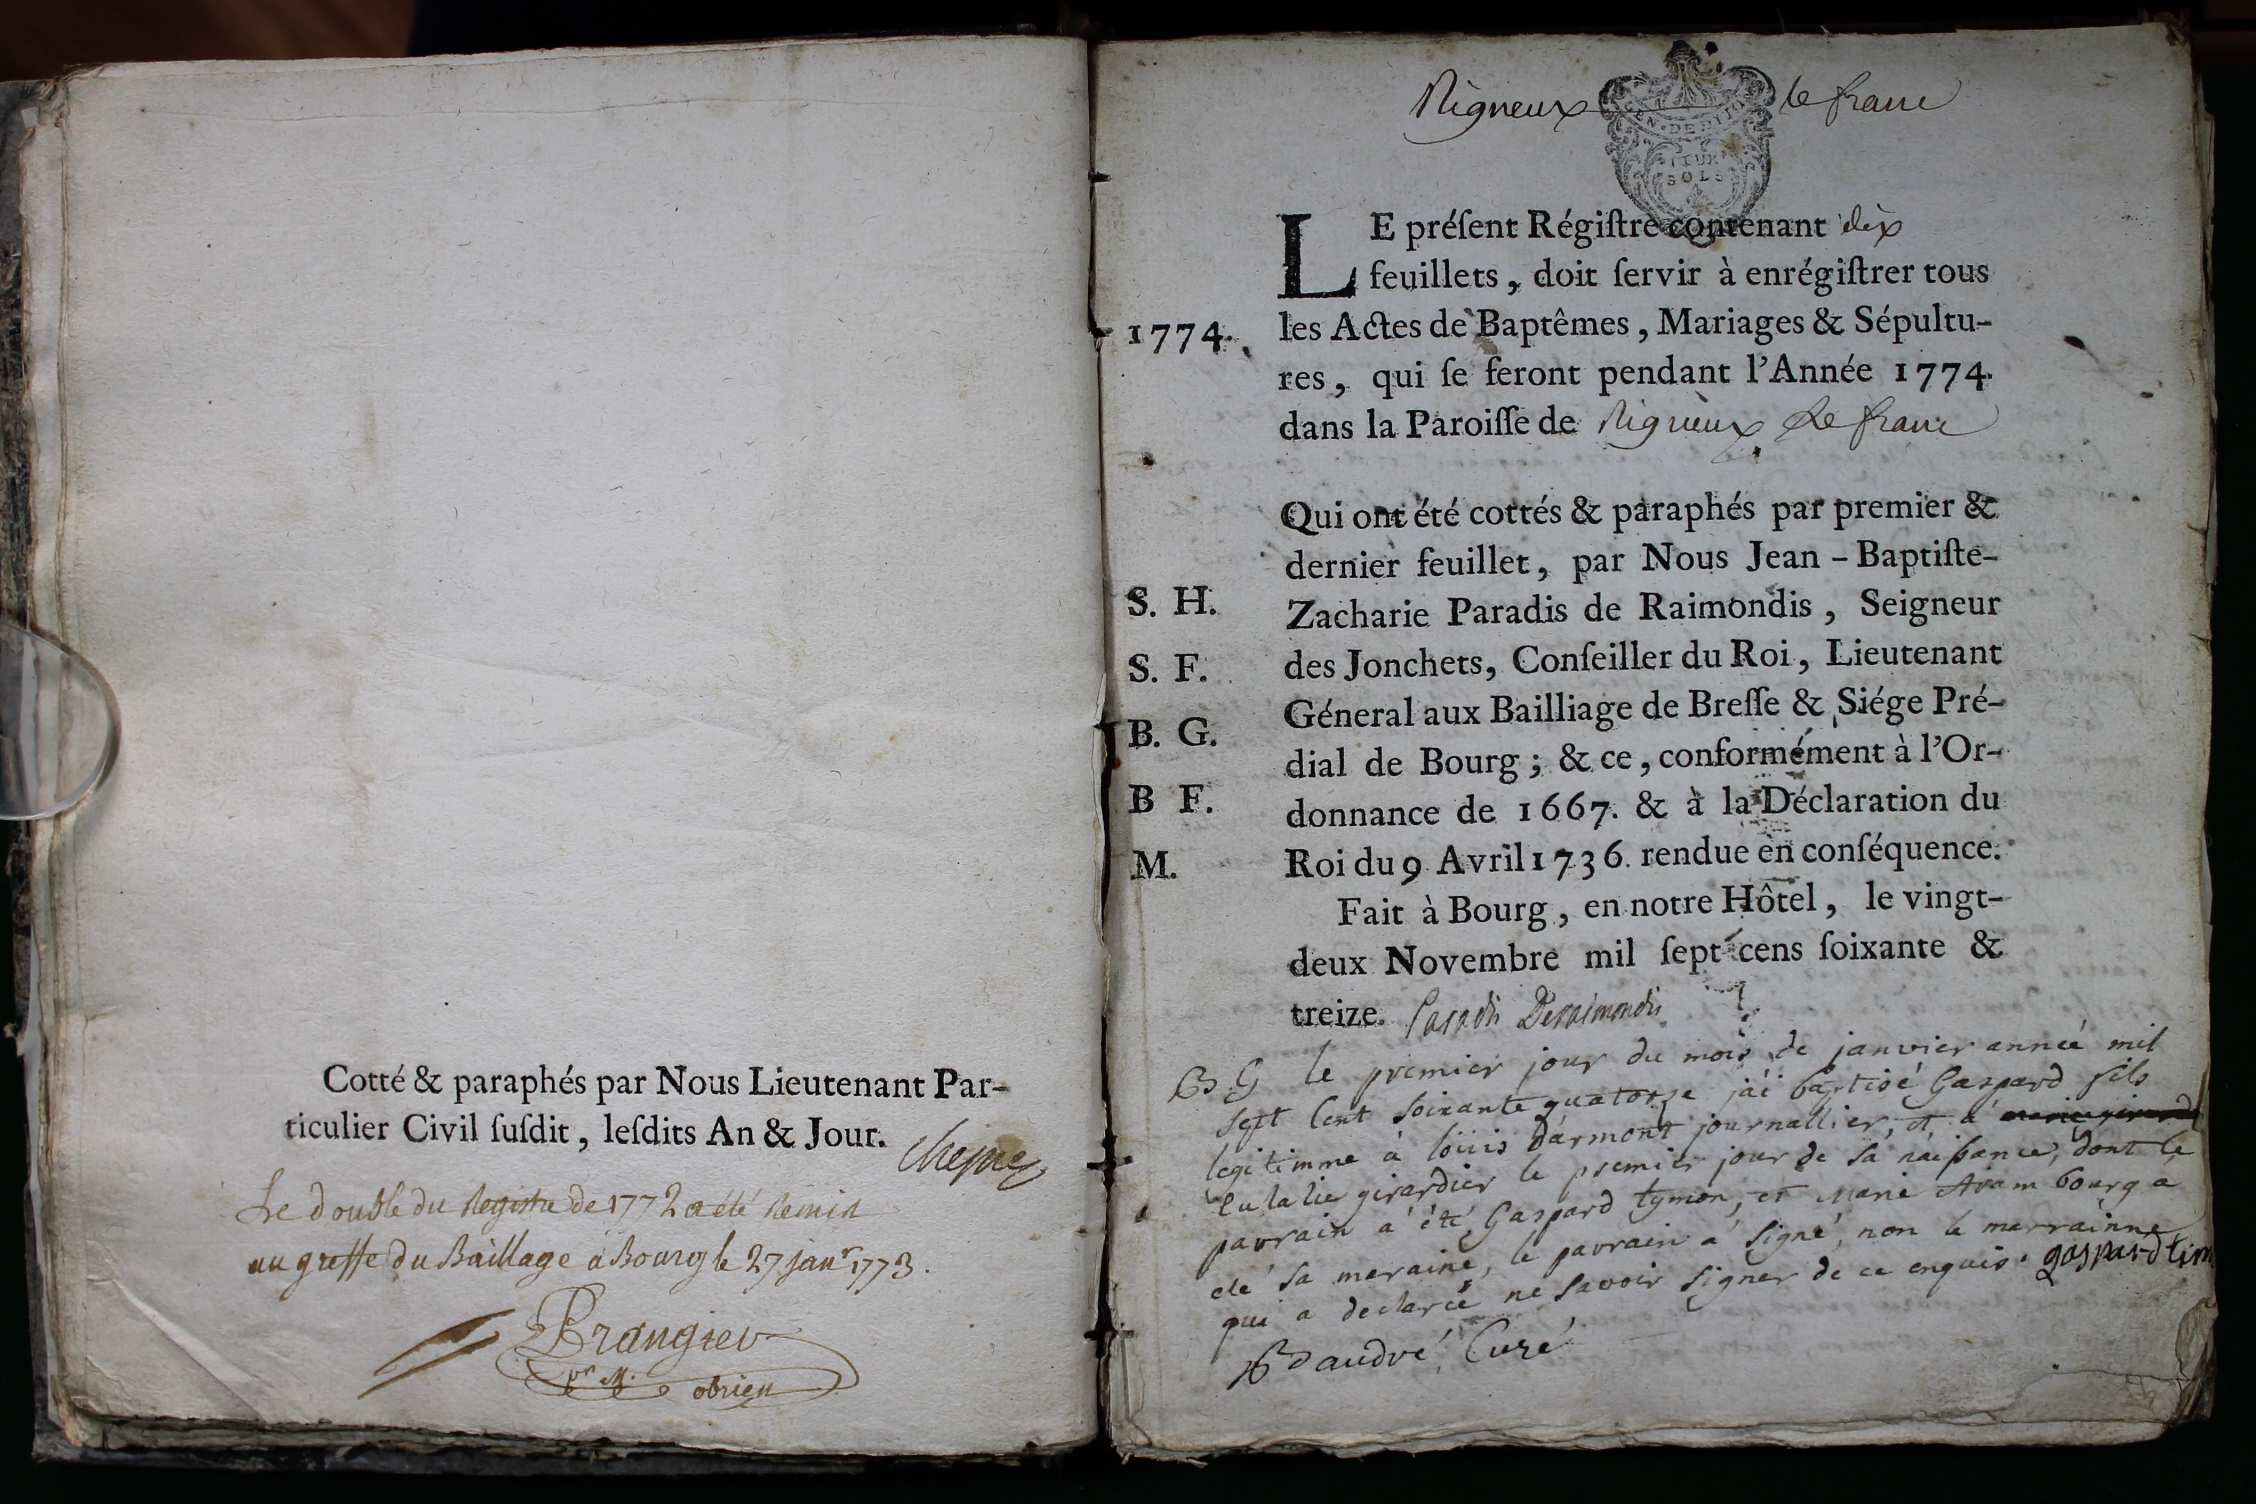 Cotté & paraphés par Nous Lieutenant Par-
ticulier Civil ſuſdit, leſdits An & Jour.
Le double du Registre de 1772 a été Remis
au greffe du Baillage a Bourg le 27 janr. 1773.
Brangier
pr. M. obrien
Rigneux le franc
EN·DE·BIT
SOLS
LE préſent Régiſtre contenant dix
feuillets, doit ſervir à enrégiſtrer tous
1774. les Actes de Baptêmes, Mariages & Sépultu-
res, qui ſe feront pendant l'Année 1774.
dans la Paroiſſe de Rigneux Le franc
Qui ont été cottés & paraphés par premier &
dernier feuillet, par Nous Jean-Baptiſte-
S. H. Zacharie Paradis de Raimondis, Seigneur
S. F. des Jonchets, Conſeiller du Roi, Lieutenant
Géneral aux Bailliage de Breſſe & Siége Pré-
B. G. dial de Bourg; & ce, conformément à l'Or-
B F. donnance de 1667. & à la Déclaration du
M. Roi du 9 Avril 1736. rendue en conſéquence.
Fait à Bourg, en notre Hôtel, le vingt-
deux Novembre mil ſept cens ſoixante &
treize. Paradis Deraimondis
B G le premier jour du mois de janvier année mil
sept Cent soixante quatorze jái baptisé Gaspard fils
legitimme à loüis dármont journallier, et a
Eulalie girardier le premier jour de sa náissance, dont le
parrain a été Gaspard tymon, et Marie Arambourg a
eté sa maraine, le parrain a signé, non la marrainne
qui a declareé ne savoir signer de ce enquis. gaspard tim
Baudré Curé